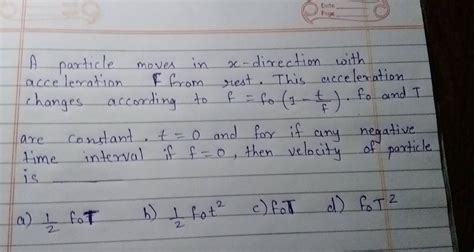 Date
Page
A particle moves in x-direction with
acceleration f from rest. This acceleration
changes according to f = f₀(1 - t/f). f₀ and T
are constant. t = 0 and for if any negative
time interval if f = 0, then velocity of particle
is
a) 1/2 f₀T b) 1/2 f₀t² c) f₀T d) f₀T²